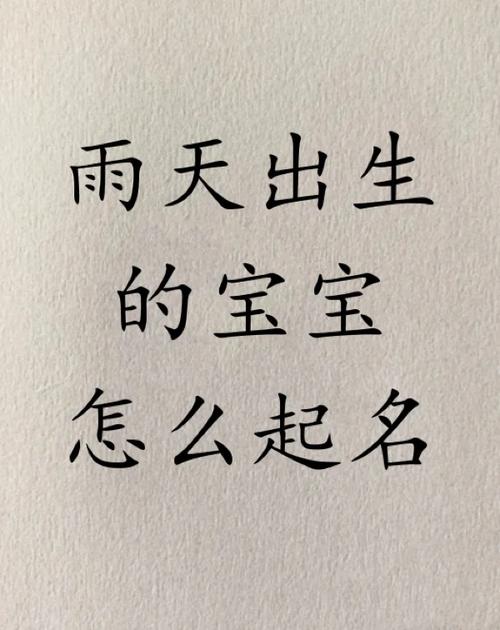 雨天出生
的宝宝
怎么起名